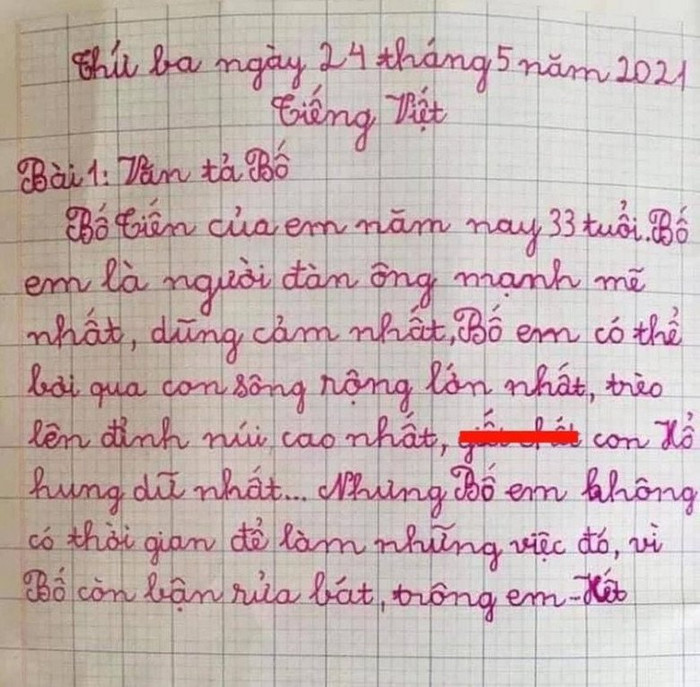 Thứ ba ngày 24 tháng 5 năm 2021
Tiếng Việt
Bài 1: Văn tả Bố
Bố Tiến của em năm nay 33 tuổi. Bố
em là người đàn ông mạnh mẽ
nhất, dũng cảm nhất, Bố em có thể
bơi qua con sông rộng lớn nhất, trèo
lên đỉnh núi cao nhất, con Hổ
hung dữ nhất... Nhưng Bố em không
có thời gian để làm những việc đó, vì
Bố còn bận rửa bát, trông em - Hết